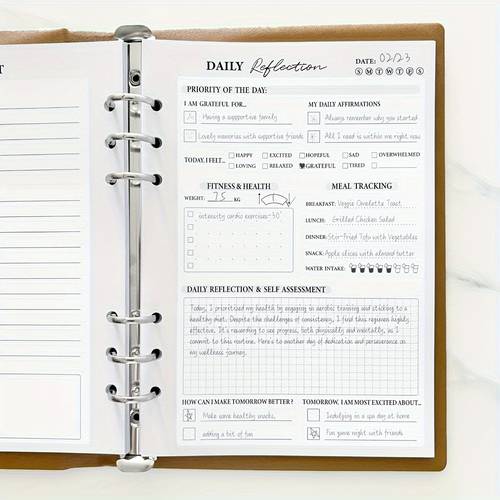 T
DAILY Reflection
DATE: 02/23
S M T W T F S
PRIORITY OF THE DAY:
I AM GRATEFUL FOR...
Having a supportive family
Lovely memories with supportive friends
MY DAILY AFFIRMATIONS
Always remember why you started
All I need is within me right now
TODAY, I FELT...
HAPPY EXCITED HOPEFUL SAD OVERWHELMED
LOVING RELAXED GRATEFUL TIRED
FITNESS & HEALTH
WEIGHT: 75 KG
intensity cardio exercises-30'
MEAL TRACKING
BREAKFAST: Veggie Omelette Toast
LUNCH: Grilled Chicken Salad
DINNER: Stir-Fried Tofu with Vegetables
SNACK: Apple slices with almond butter
WATER INTAKE:
DAILY REFLECTION & SELF ASSESSMENT
Today, I prioritized my health by engaging in aerobic training and sticking to a
healthy diet. Despite the challenges of consistency, I find this regimen highly
effective. It's rewarding to see progress, both physically and mentally, as I
commit to this routine. Here's to another day of dedication and perseverance on
my wellness journey.
HOW CAN I MAKE TOMORROW BETTER?
Make some healthy snacks,
adding a bit of fun
TOMORROW, I AM MOST EXCITED ABOUT...
Indulging in a spa day at home
Fun game night with friends